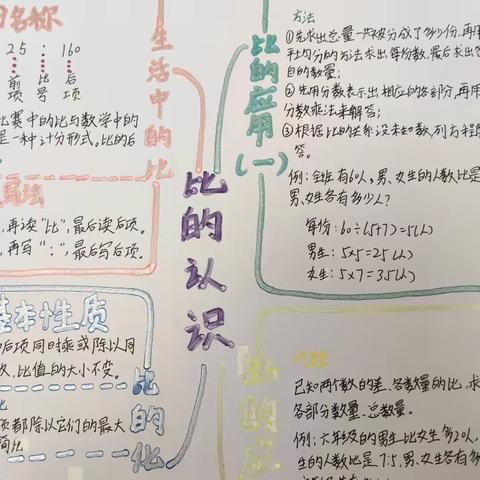 名称
25 : 160
前项 比号 后项
比赛中的比与数学中的
是一种计分形式。比的后
生活中的比
,再读"比",最后读后项。
,再写":",最后写后项。
基本性质
后项同时乘或除以同
,比值的大小不变。
比
项都除以它们的最大
简比
比的化
比的认识
比的应用(一)
方法
①先求出总量一共被分成了多少份,再用
平均分的方法求出,每份数,最后求出各
目的数量;
②先用分数表示出相应的各部分,再用
分数乘法来解答;
③根据比的关系设未知数,列方程
答。
例:全班有60人,男、女生的人数比是
男、女生各有多少人?
每份:60÷(5+7)=5(人)
男生:5×5=25(人)
女生:5×7=35(人)
比的应
问题
已知两个数的差、各数量的比,求
各部分数量、总数量。
例:六年级的男生比女生多20人,
生的人数比是7:5,男、女生各有多